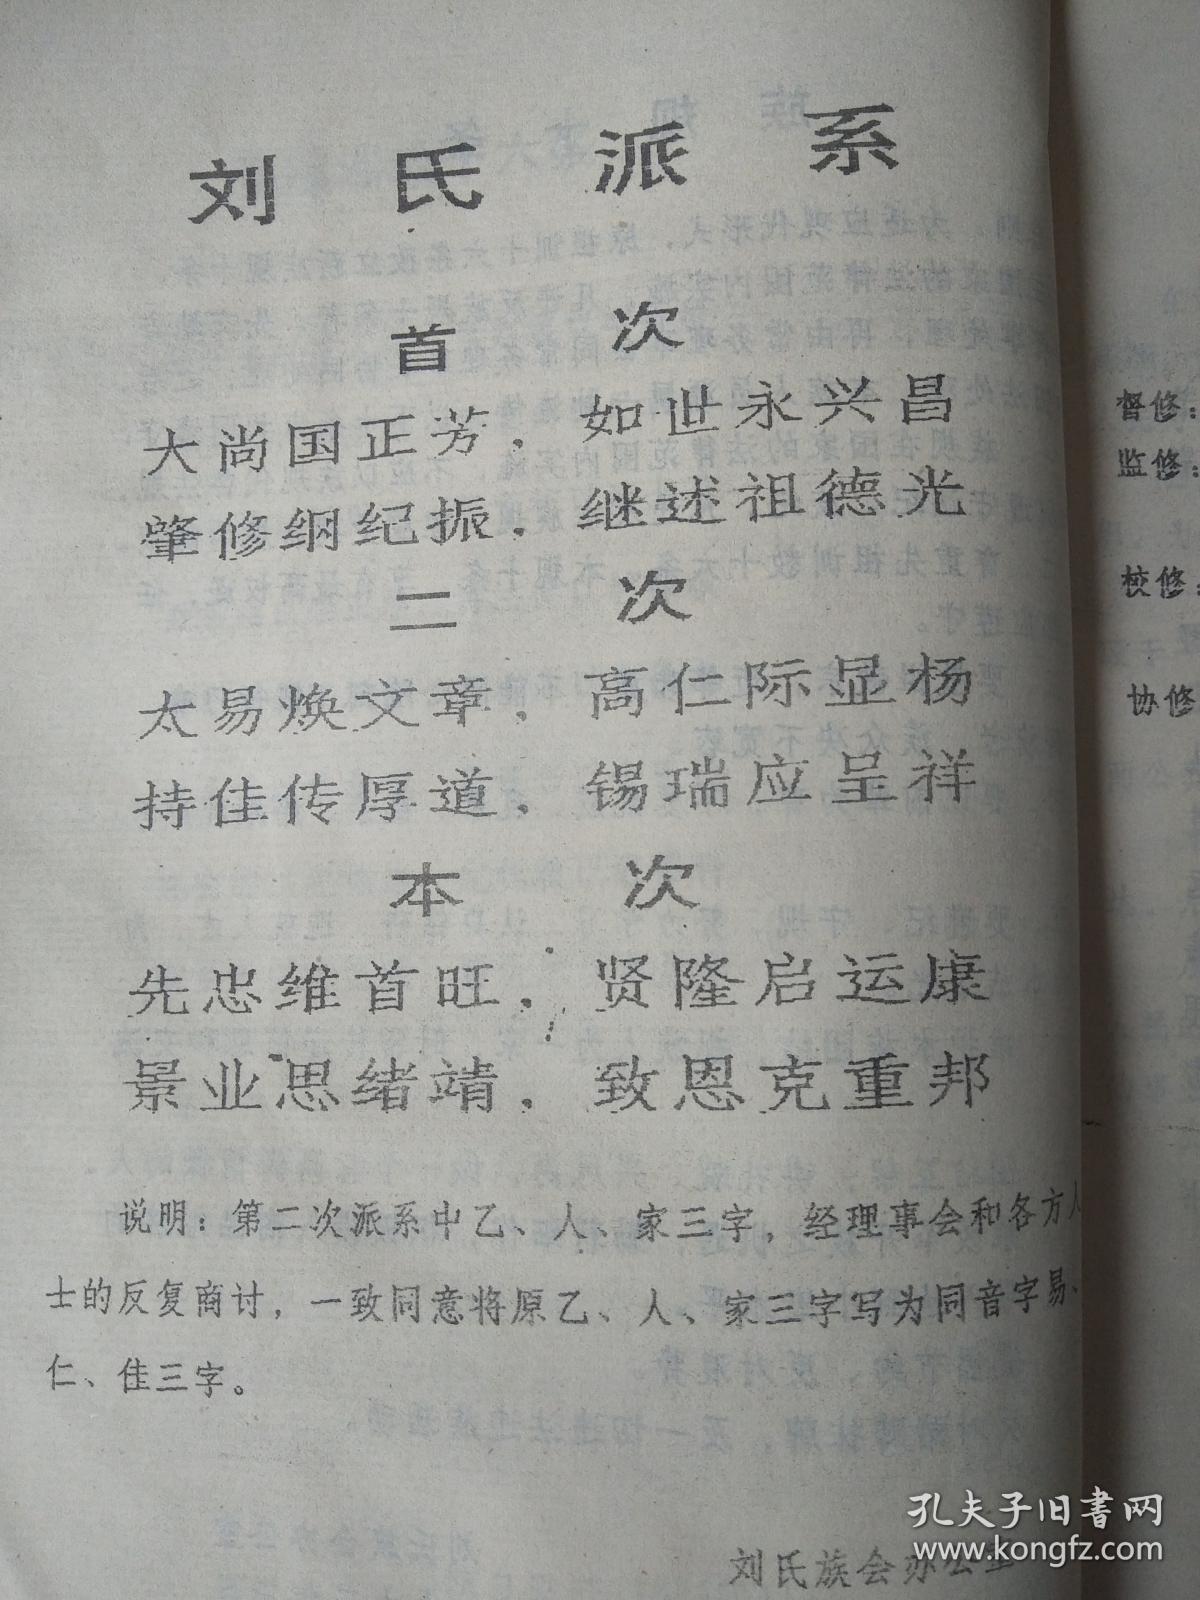 刘氏派系
首次
大尚国正芳，如世永兴昌
肇修纲纪振，继述祖德光
二次
太易焕文章，高仁际显杨
持佳传厚道，锡瑞应呈祥
本次
先忠维首旺，贤隆启运康
景业思绪靖，致恩克重邦
说明：第二次派系中乙、人、家三字，经理事会和各方人
士的反复商讨，一致同意将原乙、人、家三字写为同音字易、
仁、佳三字。
刘氏族会办公室
督修：
监修：
校修：
协修
孔夫子旧书网
www.kongfz.com